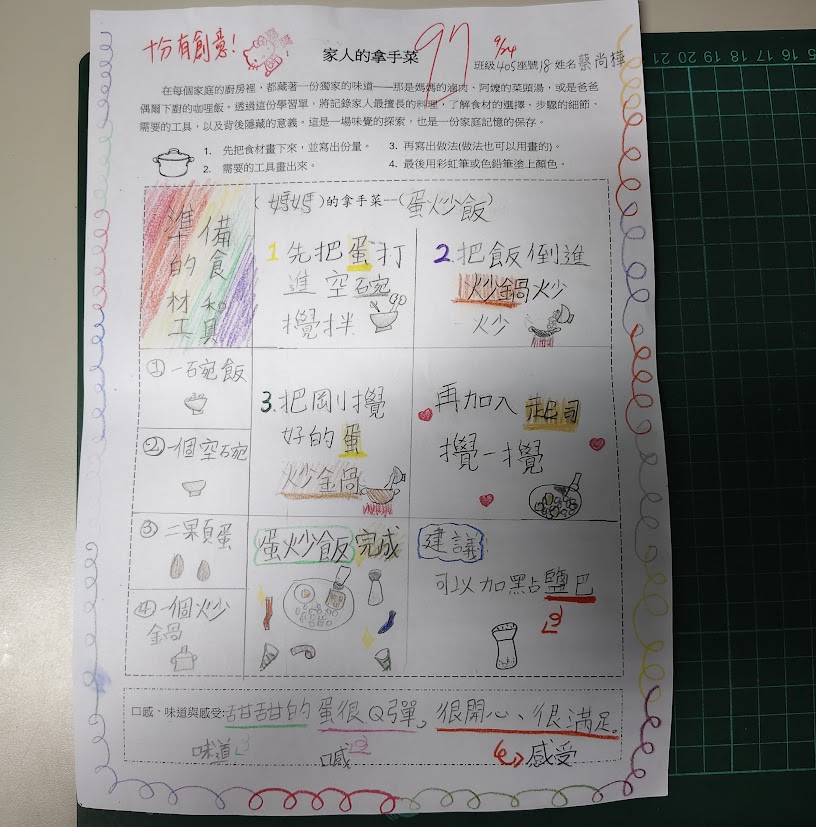 十分有創意!
家人的拿手菜
97
9/24
班級405座號18姓名蔡尚樺
在每個家庭的廚房裡，都藏著一份獨家的味道——那是媽媽的滷肉、阿嬤的菜頭湯，或是爸爸
偶爾下廚的咖哩飯。透過這份學習單，將記錄家人最擅長的料理，了解食材的選擇、步驟的細節、
需要的工具，以及背後隱藏的意義。這是一場味覺的探索，也是一份家庭記憶的保存。
1. 先把食材畫下來，並寫出份量。
2. 需要的工具畫出來。
3. 再寫出做法(做法也可以用畫的)。
4. 最後用彩虹筆或色鉛筆塗上顏色。
準備
的食
材和
工具
(媽媽)的拿手菜—(蛋炒飯)
1 先把蛋打
進空碗
攪拌
2.把飯倒進
炒鍋炒
炒
①一碗飯
②一個空碗
3.把剛攪
好的蛋
炒鍋
再加入起司
攪一攪
③二顆蛋
④一個炒
鍋
蛋炒飯完成
建議
可以加點鹽巴
口感、味道與感受:甜甜的 蛋很Q彈。很開心、很滿足。
味道
感受
15 16 17 18 19 20 21